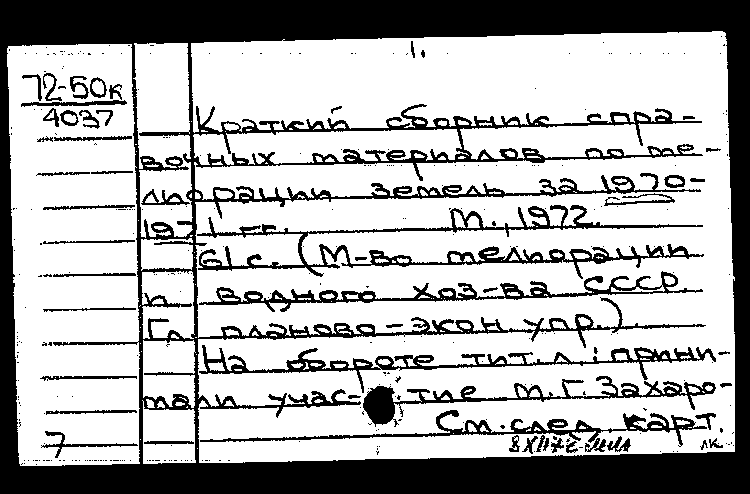 1.
72-50к
4037
Краткий сборник спра-
вочных материалов по ме-
лиорации земель за 1970-
1971 гг. М., 1972.
61 с. (М-во мелиорации
и водного хоз-ва СССР.
Гл. планово-экон. упр.).
На обороте тит. л.: прини-
мали учас-тие М.Г. Захаро-
См. след. карт.
7
лк